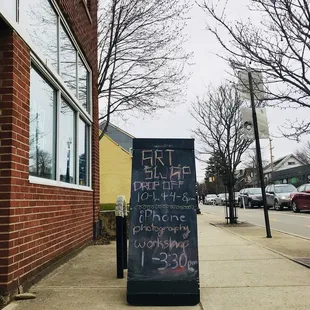 ART
SWAP
DROP OFF
iPhone
photography
workshop
1-3:30pm